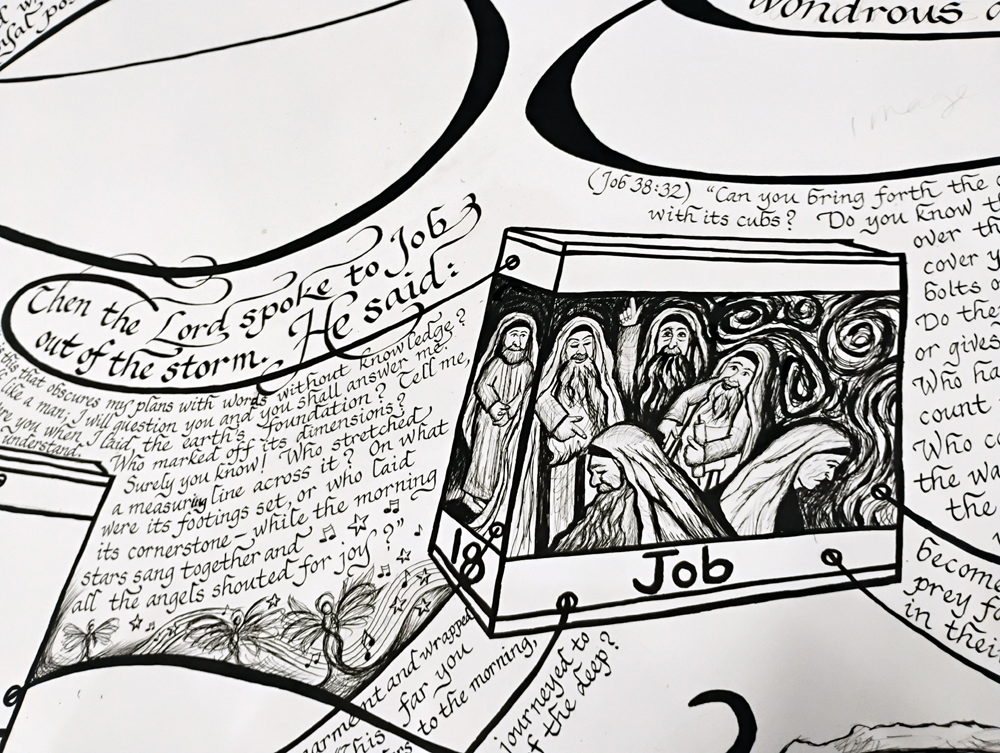 wondrous
image
(Job 38:32) "Can you bring forth the
with its cubs? Do you know
over
cover
bolts
Do the
or gives
Who
count
Who
the
the
become
prey
in their
Then the Lord spoke to Job
out of the storm. He said:
this that obscures my plans with words without knowledge?
like a man; I will question you and you shall answer me.
you when I laid the earth's foundation? Tell me,
understand.
Who marked off its dimensions?
Surely you know! Who stretched
a measuring line across it? On what
were its footings set, or who laid
its cornerstone – while the morning
stars sang together and
all the angels shouted for joy?"
18
Job
and wrapped
"This far you
to the morning,
journeyed to
the deep?